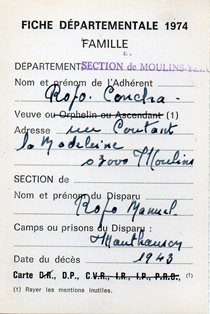 FICHE DÉPARTEMENTALE 1974
FAMILLE
DÉPARTEMENT SECTION de MOULINS-
Nom et prénom de l'Adhérent
Rojo. Concha.
Veuve ou Orphelin ou Ascendant (1)
Adresse rue Coutant
la Madeleine
03000 Moulins
SECTION de
Nom et prénom du Disparu
Rojo Manuel
Camps ou prisons du Disparu :
Mauthausen
Date du décès 1943
Carte D.R., D.P., C.V.R., I.R., I.P., P.R.O., (1)
(1) Rayer les mentions inutiles.